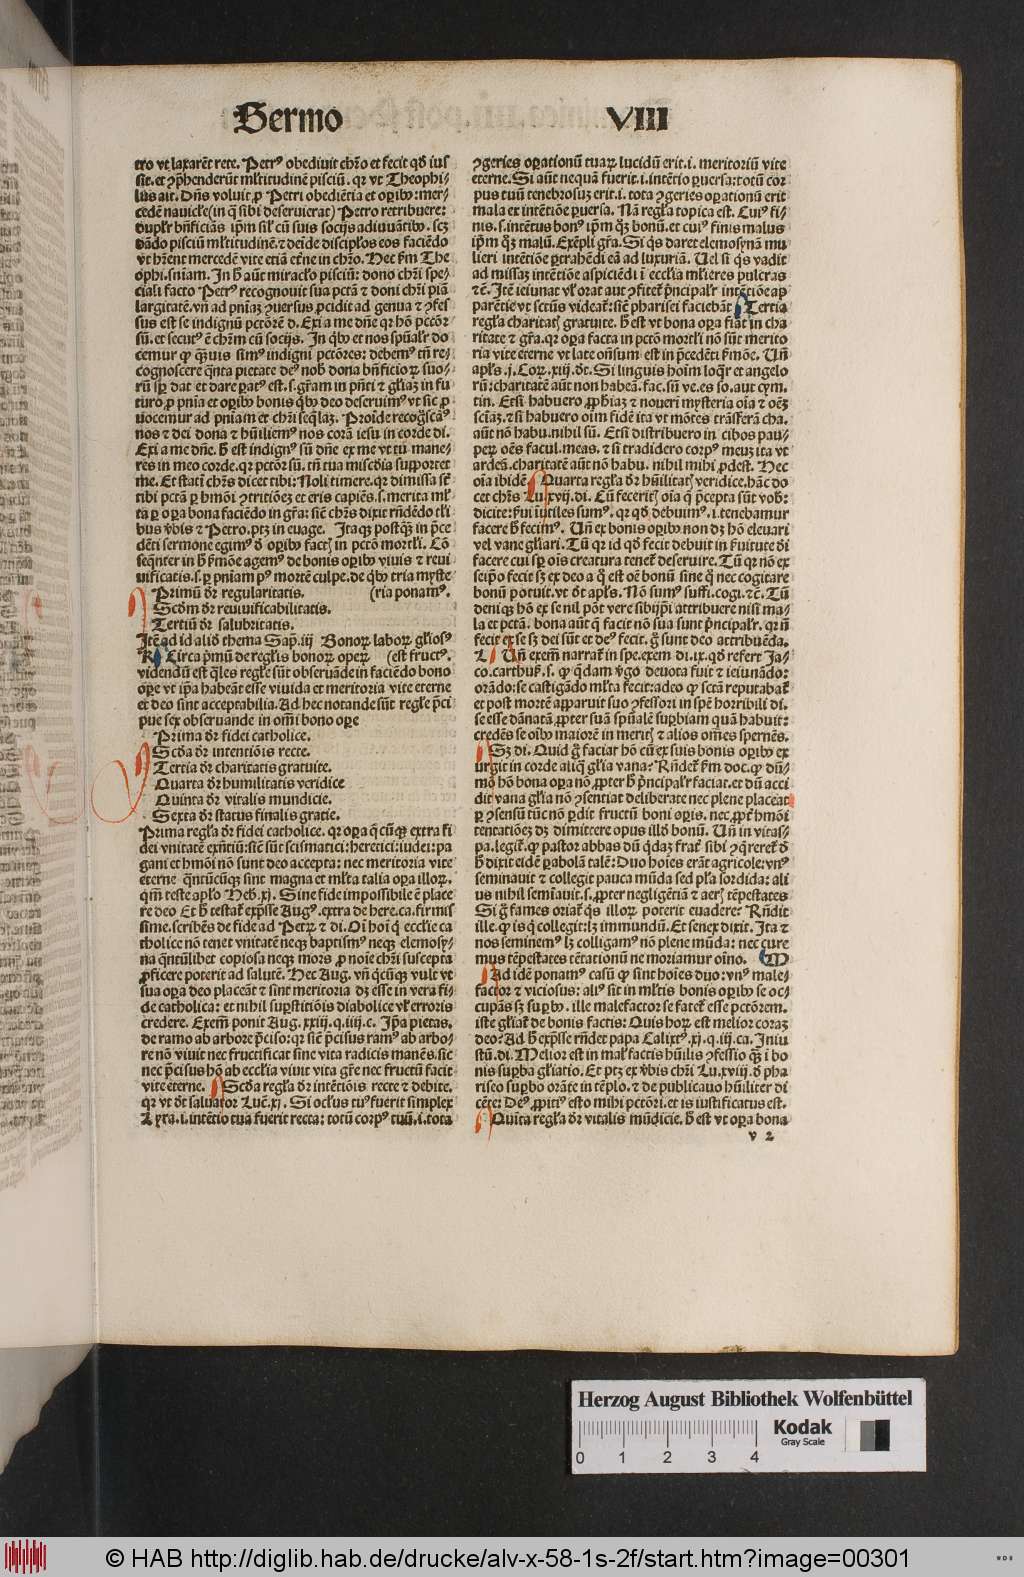 Sermo VIII
tro vt laxarẽt rete. Petrꝰ obediuit chr̃o et fecit qđ ius
sit. et ꝯp̃henderũt ml̃titudinẽ pisciũ. qr vt Theophi⸗
lus ait. Dñs voluit ꝓ Petri obediẽtia et oꝑibꝰ: mer⸗
cedẽ nauicl̃e (in q̃ sibi deseruierat) Petro retribuere:
dupl̃r bñficiãs ip̃m sil̃ cũ suis socijs adiuuãtibꝰ. scꝫ
dãdo pisciũ ml̃titudinẽ. ⁊ deĩde discipl̃os eos faciẽdo
vt hr̃ent mercedẽ vite etiã etr̃ne in chr̃o. Hec s̃m The
ophi. sñiam. In h̃ aũt miracl̃o pisciũ: dono chr̃i spe⸗
ciali facto Petrꝰ recognouit sua pctã ⁊ doni chr̃i piã
largitatẽ. vñ ad pniaꝫ ꝯuersus ꝓcidit ad genua ⁊ ꝯfes
sus est se indignũ pctõrẽ d. Exi a me dñe qr hõ pctõr
sũ. et secutꝰ ẽ chr̃m cũ socijs. In q̃bꝰ et nos spũal̃r do
cemur ꝙ q̃ꝫuis simꝰ indigni pctõres: debemꝰ tñ re⸗
cognoscere q̃nta pietate deꝰ nob̃ dona bñficioꝝ suo⸗
rũ sp̃ dat et dare ꝑatꝰ est. s. gr̃am in pñti ⁊ gl̃iaꝫ in fu
turo ꝓ pnia et oꝑibꝰ bonis q̃bꝰ deo deseruimꝰ vt sic ꝓ
uocemur ad pniam et chr̃i seq̃laꝫ. Proĩde recog̃scẽꝰ
nos ⁊ dei dona ⁊ hũiliemꝰ nos corã iesu in corde di.
Exi a me dñe. h̃ est indignꝰ sũ dñe ex me vt tũ mane⸗
res in meo corde. qr pctõr sũ. tñ tua misc̃dia supportet
me. Et statĩ chr̃s dicet tibi: Noli timere. qr dimissa sẽ
tibi pctã ꝑ hmõi ꝯtritiõeꝫ et eris capiẽs. s. merita ml̃
ta ꝑ oꝑa bona faciẽdo in gr̃a: sic̃ chr̃s dixit rñdẽdo tl̃i
bus vb̃is ⁊ Petro. ptꝫ in euãge. Itaqꝫ postq̃ꝫ in p̃ce
dẽti sermone egimꝰ đ oꝑibꝰ factꝭ in pctõ mortl̃i. Cõ
seq̃nter in h̃ ẜmõne agemꝰ de bonis oꝑibꝰ viuis ⁊ reui
uificatis. s. ꝑ pniam pꝰ mortẽ culpe. de q̃bꝰ tria myste
Primũ dr̃ regularitatis. (ria ponamꝰ.
Scđm dr̃ reuiuificabilitatis.
Tertiũ dr̃ salubritatis.
Itẽ ad id aliđ thema Sap̃. iij Bonoꝝ laboꝝ gl̃iosꝰ
K Circa p̃mũ de regl̃is bonoꝝ operꝝ (est fructꝰ.
videndũ est q̃les regl̃e sũt obseruãde in faciẽdo bono
oꝑe vt ip̃a habeãt esse viuida et meritoria vite eterne
et deo sint acceptabilia. Ad hec notande sũt regl̃e p̃ci
pue sex obseruande in om̃i bono oꝑe
Prima dr̃ fidei catholice.
Scđa dr̃ intentiõis recte.
Tertia dr̃ charitatis gratuite.
Quarta dr̃ humilitatis veridice
Quinta dr̃ vitalis mundicie.
Sexta dr̃ status finalis gratie.
Prima regl̃a dr̃ fidei catholice. qr oꝑa q̃cũqꝫ extra fi
dei vnitatẽ exñtiũ: sic̃ sũt scismatici: heretici: iudei: pa
gani et hmõi nõ sunt deo accepta: nec meritoria vite
eterne q̃ntũcũqꝫ sint magna et ml̃ta talia oꝑa illoꝝ.
qm̃ teste apl̃o Heb̃. xj. Sine fide impossibile ẽ place
re deo Et h̃ testat̃ exp̃sse Augꝰ. extra de here. ca. firmis
sime. scribẽs de fide ad Petꝝ ⁊ di. Oĩ hoĩ q̃ eccl̃ie ca
tholice nõ tenet vnitatẽ neqꝫ baptismꝰ neqꝫ elemosy⸗
na q̃ntũlibet copiosa neqꝫ mors ꝓ noĩe chr̃i suscepta
ꝓficere poterit ad salutẽ. Hec Aug. vñ q̃cũqꝫ vult vt
sua oꝑa deo placeãt ⁊ sint meritoria dꝫ esse in vera fi⸗
de catholica: et nihil suꝑstitiõis diabolice vl̃ erroris
credere. Exem̃ ponit Aug. xxiij. q. iiij. c. Ip̃a pietas.
de ramo ab arbore p̃ciso: qr sic̃ p̃cisus ramꝰ ab arbo⸗
re nõ viuit nec fructificat sine vita radicis manẽs. sic
nec p̃cisus hõ ab eccl̃ia viuit vita gr̃e nec fructũ facit
vite eterne. Scđa regl̃a dr̃ intẽtiõis recte ⁊ debite.
qr vt đt saluator Luc̃. xj. Si ocl̃us tuꝰ fuerit simplex
L ꝯtra. i. intẽtio tua fuerit recta: totũ corpꝰ tuũ. i. tota
ꝯgeries oꝑationũ tuaꝝ lucidũ erit. i. meritoriũ vite
eterne. Si aũt nequã fuerit. i. intẽtio ꝑuersa: totũ cor
pus tuũ tenebrosuꝫ erit. i. tota ꝯgeries oꝑationũ erit
mala ex intẽtiõe ꝑuersa. Nã regl̃a topica est. Cuiꝰ fi⸗
nis. s. intẽtus bonꝰ ip̃m qꝫ bonũ. et cuiꝰ finis malus
ip̃m qꝫ malũ. Exẽpli gr̃a. Si q̃s daret elemosynã mu
lieri intẽtiõe ꝑtrahẽdi eã ad luxuriã. Uel si q̃s vadit
ad missaꝫ intẽtiõe aspiciẽdi ĩ eccl̃ia ml̃ieres pulcras
⁊c̃. Itẽ ieiunat vl̃ orat aut ꝯfitet̃ p̃ncipal̃r intẽtiõe ap
parẽtie vt sctũs videat̃: sic̃ pharisei faciebãt Tertia
regl̃a charitatꝭ gratuite. h̃ est vt bona oꝑa fiãt in cha
ritate ⁊ gr̃a. qr oꝑa facta in pctõ mortl̃i nõ sũt merito
ria vite eterne vt late oñsum est in p̃cedẽti ẜmõe. Uñ
apl̃s. j. Coꝝ. xiij. đt. Si linguis hoĩm loqr̃ et angelo
rũ: charitatẽ aũt non habeã. fac. sũ ve. es so. aut cym.
tin. Etsi habuero ꝓphiaꝫ ⁊ nouerĩ mysteria oĩa ⁊ oẽꝫ
sciẽaꝫ. ⁊ si habuero oim fidẽ ita vt mõtes trãsferã cha.
aũt nõ habu. nihil sũ. Etsi distribuero in cibos pau⸗
peꝝ oẽs facul. meas. ⁊ si tradidero corpꝰ meuꝫ ita vt
ardeã. charitatẽ aũt nõ habu. nihil mihi ꝓdest. Hec
oĩa ibidẽ Quarta regl̃a dr̃ hũilitatꝭ veridice. hãc do
cet chr̃s Lu. xvij. di. Cũ feceritꝭ oĩa q̃ p̃cepta sũt vob̃:
dicite: ẜui iutiles sumꝰ. qr qđ debuimꝰ. i. tenebamur
facere h̃ fecimꝰ. Uñ ex bonis oꝑibꝰ non dꝫ hõ eleuari
vel vane gl̃iari. Tũ qr id qđ fecit debuit in ẜuitute đi
facere cui sp̃ oĩs creatura tenet̃ deseruire. Tũ qr nõ ex
seip̃o fecit sꝫ ex deo a q̃ est oẽ bonũ sine q̃ nec cogitare
bonũ potuit. vt đt apl̃s. Nõ sumꝰ suffi. cogi. ⁊c̃. Tũ
deniqꝫ hõ ex se nil põt vere sibiip̃i attribuere nisi ma⸗
la et pctã. bona aũt q̃ facit nõ sua sunt p̃ncipal̃r. qr ñ
fecit ex se sꝫ dei sũt et deꝰ fecit. g̃ sunt deo attribuẽda.
L Uñ exem̃ narrat̃ in spe. exem. di. ix. qđ refert Ja⸗
co. carthuẽ. s. ꝙ q̃dam ṽgo deuota fuit ⁊ ieiunãdo:
orãdo: se castigãdo ml̃ta fecit: adeo ꝙ sctã reputabat̃
et post mortẽ apparuit suo ꝯfessori in spẽ horribili di.
se esse dãnatã ꝓpter suã spũalẽ suꝑbiam quã habuit:
credẽs se oĩbꝰ maiorẽ in meritꝭ ⁊ alios om̃es spernẽs.
Sꝫ di. Quid g̃ faciat hõ cũ ex suis bonis oꝑibꝰ ex
urgit in corde aliq̃ gl̃ia vana? Rñdet̃ s̃m doc. ꝙ dũ⸗
mõ hõ bona oꝑa nõ ꝓpter h̃ p̃ncipal̃r faciat. et dũ acci
dit vana gl̃ia nõ ꝯsentiat deliberate nec plene placeat
ꝑ ꝯsensũ tũc nõ ꝑdit fructũ boni oꝑis. nec ꝓpt̃ hmõi
tentatiõeꝫ dꝫ dimittere opus illđ bonũ. Uñ in vitas⸗
pa. legit̃. ꝙ pastor abbas dũ q̃daꝫ frat̃ sibi ꝯq̃reret̃ đ
h̃ dixit eidẽ ꝑabolã talẽ: Duo hoĩes erãt agricole: vnꝰ
seminauit ⁊ collegit pauca mũda sed pl̃a sordida: ali
us nihil semĩauit. s. ꝓpter negligẽtiã ⁊ aerꝭ tẽpestates
Si g̃ fames oriat̃ q̃s illoꝝ poterit euadere? Rñdit
ille. ꝙ is q̃ collegit: lꝫ immundũ. Et senex dixit. Ita ⁊
nos seminemꝰ lꝫ colligamꝰ nõ plene mũda: nec cure
mus tẽpestates tẽtationũ ne moriamur oĩno. M
Ad idẽ ponamꝰ casũ ꝙ sint hoĩes duo: vnꝰ male⸗
factor ⁊ viciosus: aliꝰ sit in ml̃tis bonis oꝑibꝰ se oc⸗
cupãs sꝫ suꝑbꝰ. ille malefactor se fatet̃ esse pctõrem.
iste gl̃iat̃ de bonis factis: Quis hoꝝ est melior coraꝫ
deo? Ad h̃ exp̃sse rñdet papa Calixtꝰ. xj. q. iij. ca. In iu
stũ. di. Melior est in mal̃ factis hũilis ꝯfessio q̃ꝫ i bo
nis suꝑba gl̃iatio. Et ptꝫ ex vb̃is chr̃i Lu. xviij. đ pha
riseo suꝑbo orãte in tẽplo. ⁊ de publicano hũiliter di
cẽte: Deꝰ ꝓpitiꝰ esto mihi pctõri. et is iustificatus est.
Quĩta regl̃a dr̃ vitalis mũdicie. h̃ est vt oꝑa bona
v 2
Herzog August Bibliothek Wolfenbüttel
Kodak
Gray Scale
0 1 2 3 4
© HAB http://diglib.hab.de/drucke/alv-x-58-1s-2f/start.htm?image=00301